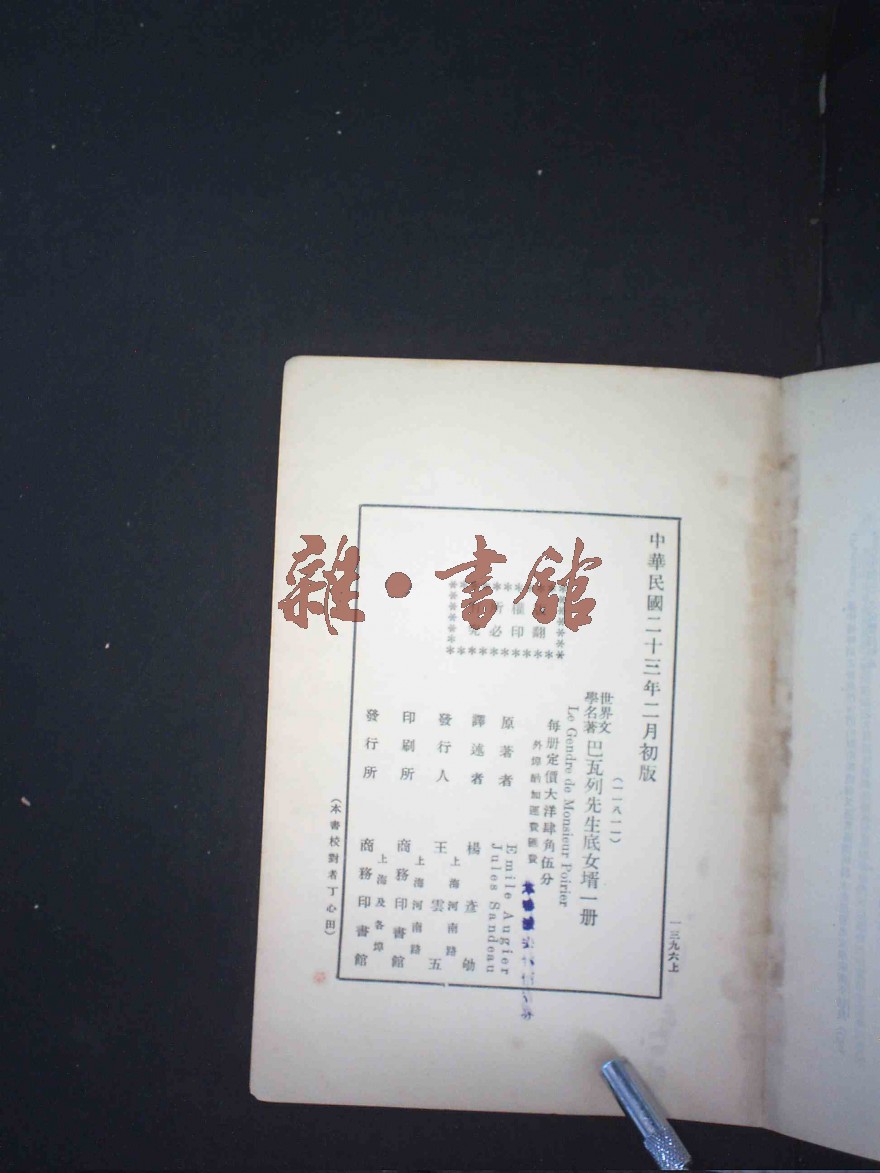 中華民國二十三年二月初版
(一一八一一)
世界文學名著 巴瓦列先生底女壻一册
Le Gendre de Monsieur Poirier
每册定價大洋肆角伍分
外埠酌加運費匯費
翻
印
必
原著者
Emile Augier
Jules Sandeau
譯述者 楊彥劬
發行人 王雲五
上海河南路
印刷所 商務印書館
上海河南路
發行所 商務印書館
上海及各埠
(本書校對者丁心田)
一三九六上
雜·書館